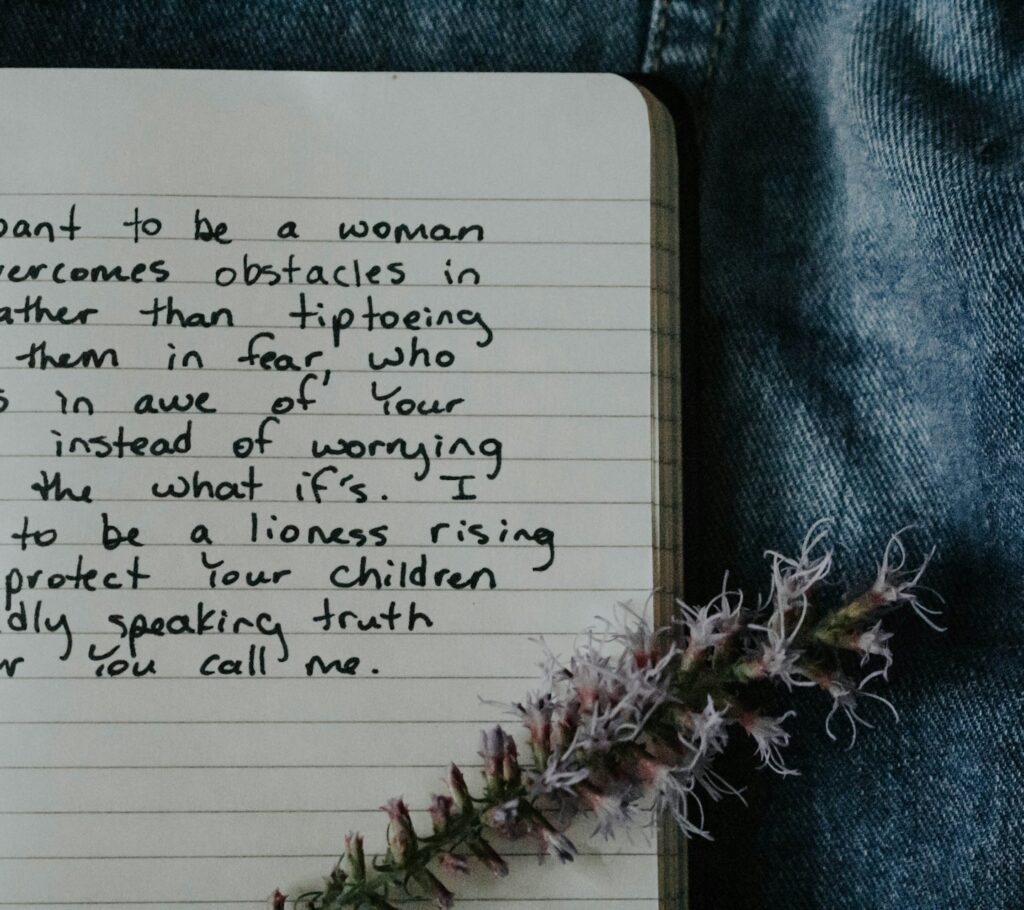 to be a woman
obstacles in
than tiptoeing
them in fear, who
in awe of Your
instead of worrying
the what if's. I
to be a lioness rising
protect Your children
speaking truth
You call me.